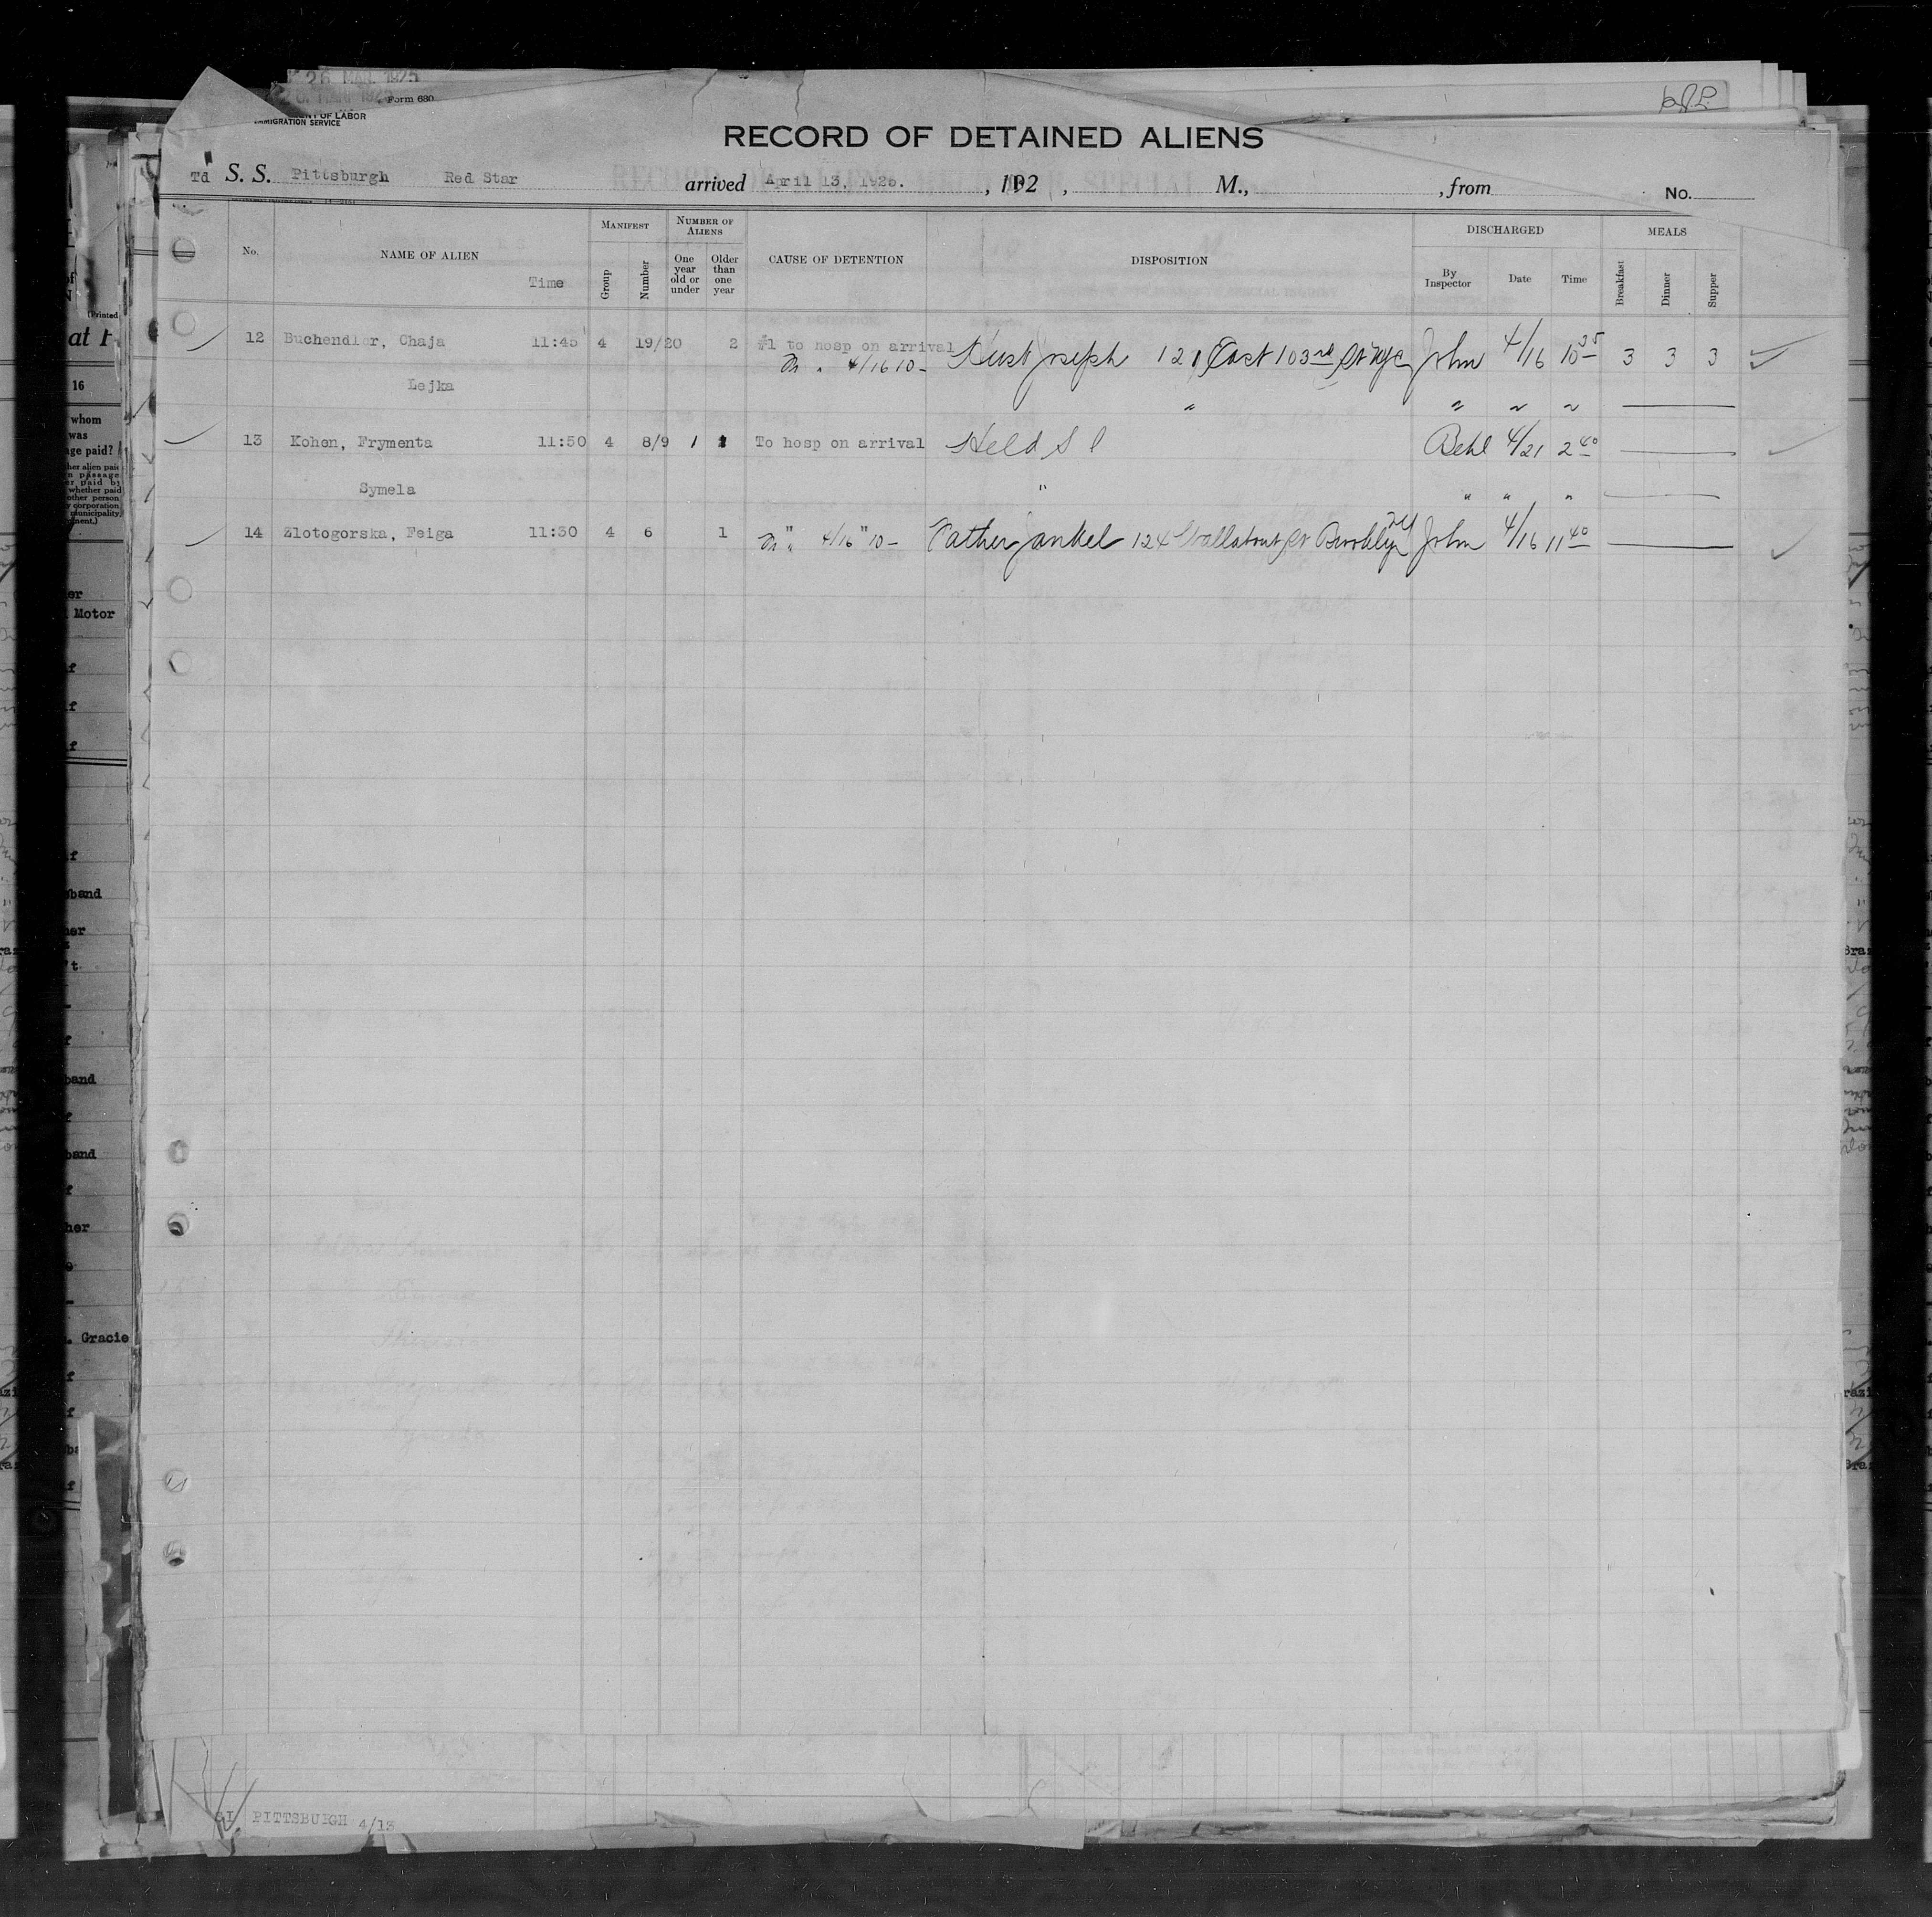 26 MAR 1925
Form 680
OF LABOR
IMMIGRATION SERVICE
RECORD OF DETAINED ALIENS
Td S. S. Pittsburgh Red Star arrived April 13, 1925. , 192 , M., , from No.
No. NAME OF ALIEN Time MANIFEST Group Number NUMBER OF ALIENS One year old or under Older than one year CAUSE OF DETENTION DISPOSITION DISCHARGED By Inspector Date Time MEALS Breakfast Dinner Supper
12 Buchendler, Chaja 11:45 4 19/20 2 #1 to hosp on arrival Husb Joseph 121 East 103rd St NYC John 4/16 10 35 3 3 3
" 4/16 10-
Lejka
" " " "
13 Kohen, Frymenta 11:50 4 8/9 1 1 To hosp on arrival Held S I Behl 4/21 2 40
Symela " " " "
14 Zlotogorska, Feiga 11:30 4 6 1 " " 4/16 10- Father Jankel 124 Wallabout St Brooklyn NY John 4/16 11 40
SI PITTSBURGH 4/13
at
16
whom
was
age paid?
Motor
band
her
band
band
her
. Gracie